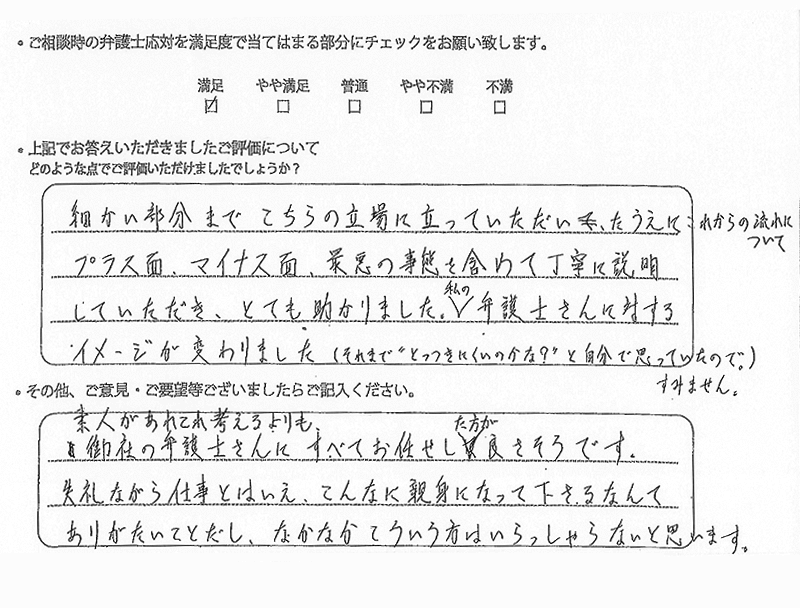 ・ご相談時の弁護士応対を満足度で当てはまる部分にチェックをお願い致します。
満足 やや満足 普通 やや不満 不満
☑ □ □ □ □
・上記でお答えいただきましたご評価について
どのような点でご評価いただけましたでしょうか？
細かい部分まで こちらの立場に立っていただいた、たうえにこれからの流れに
ついて
プラス面、マイナス面、最悪の事態を含めて丁寧に説明
していただき、とても助かりました。私の弁護士さんに対する
イメージが変わりました（それまで“とっつきにくいのかな？”と自分で思っていたので。）
すみません。
・その他、ご意見・ご要望等ございましたらご記入ください。
素人があれこれ考えるよりも、
御社の弁護士さんに すべてお任せした方が良さそうです。
失礼ながら仕事とはいえ、こんなに親身になって下さるなんて
ありがたいことだし、なかなかこういう方はいらっしゃらないと思います。